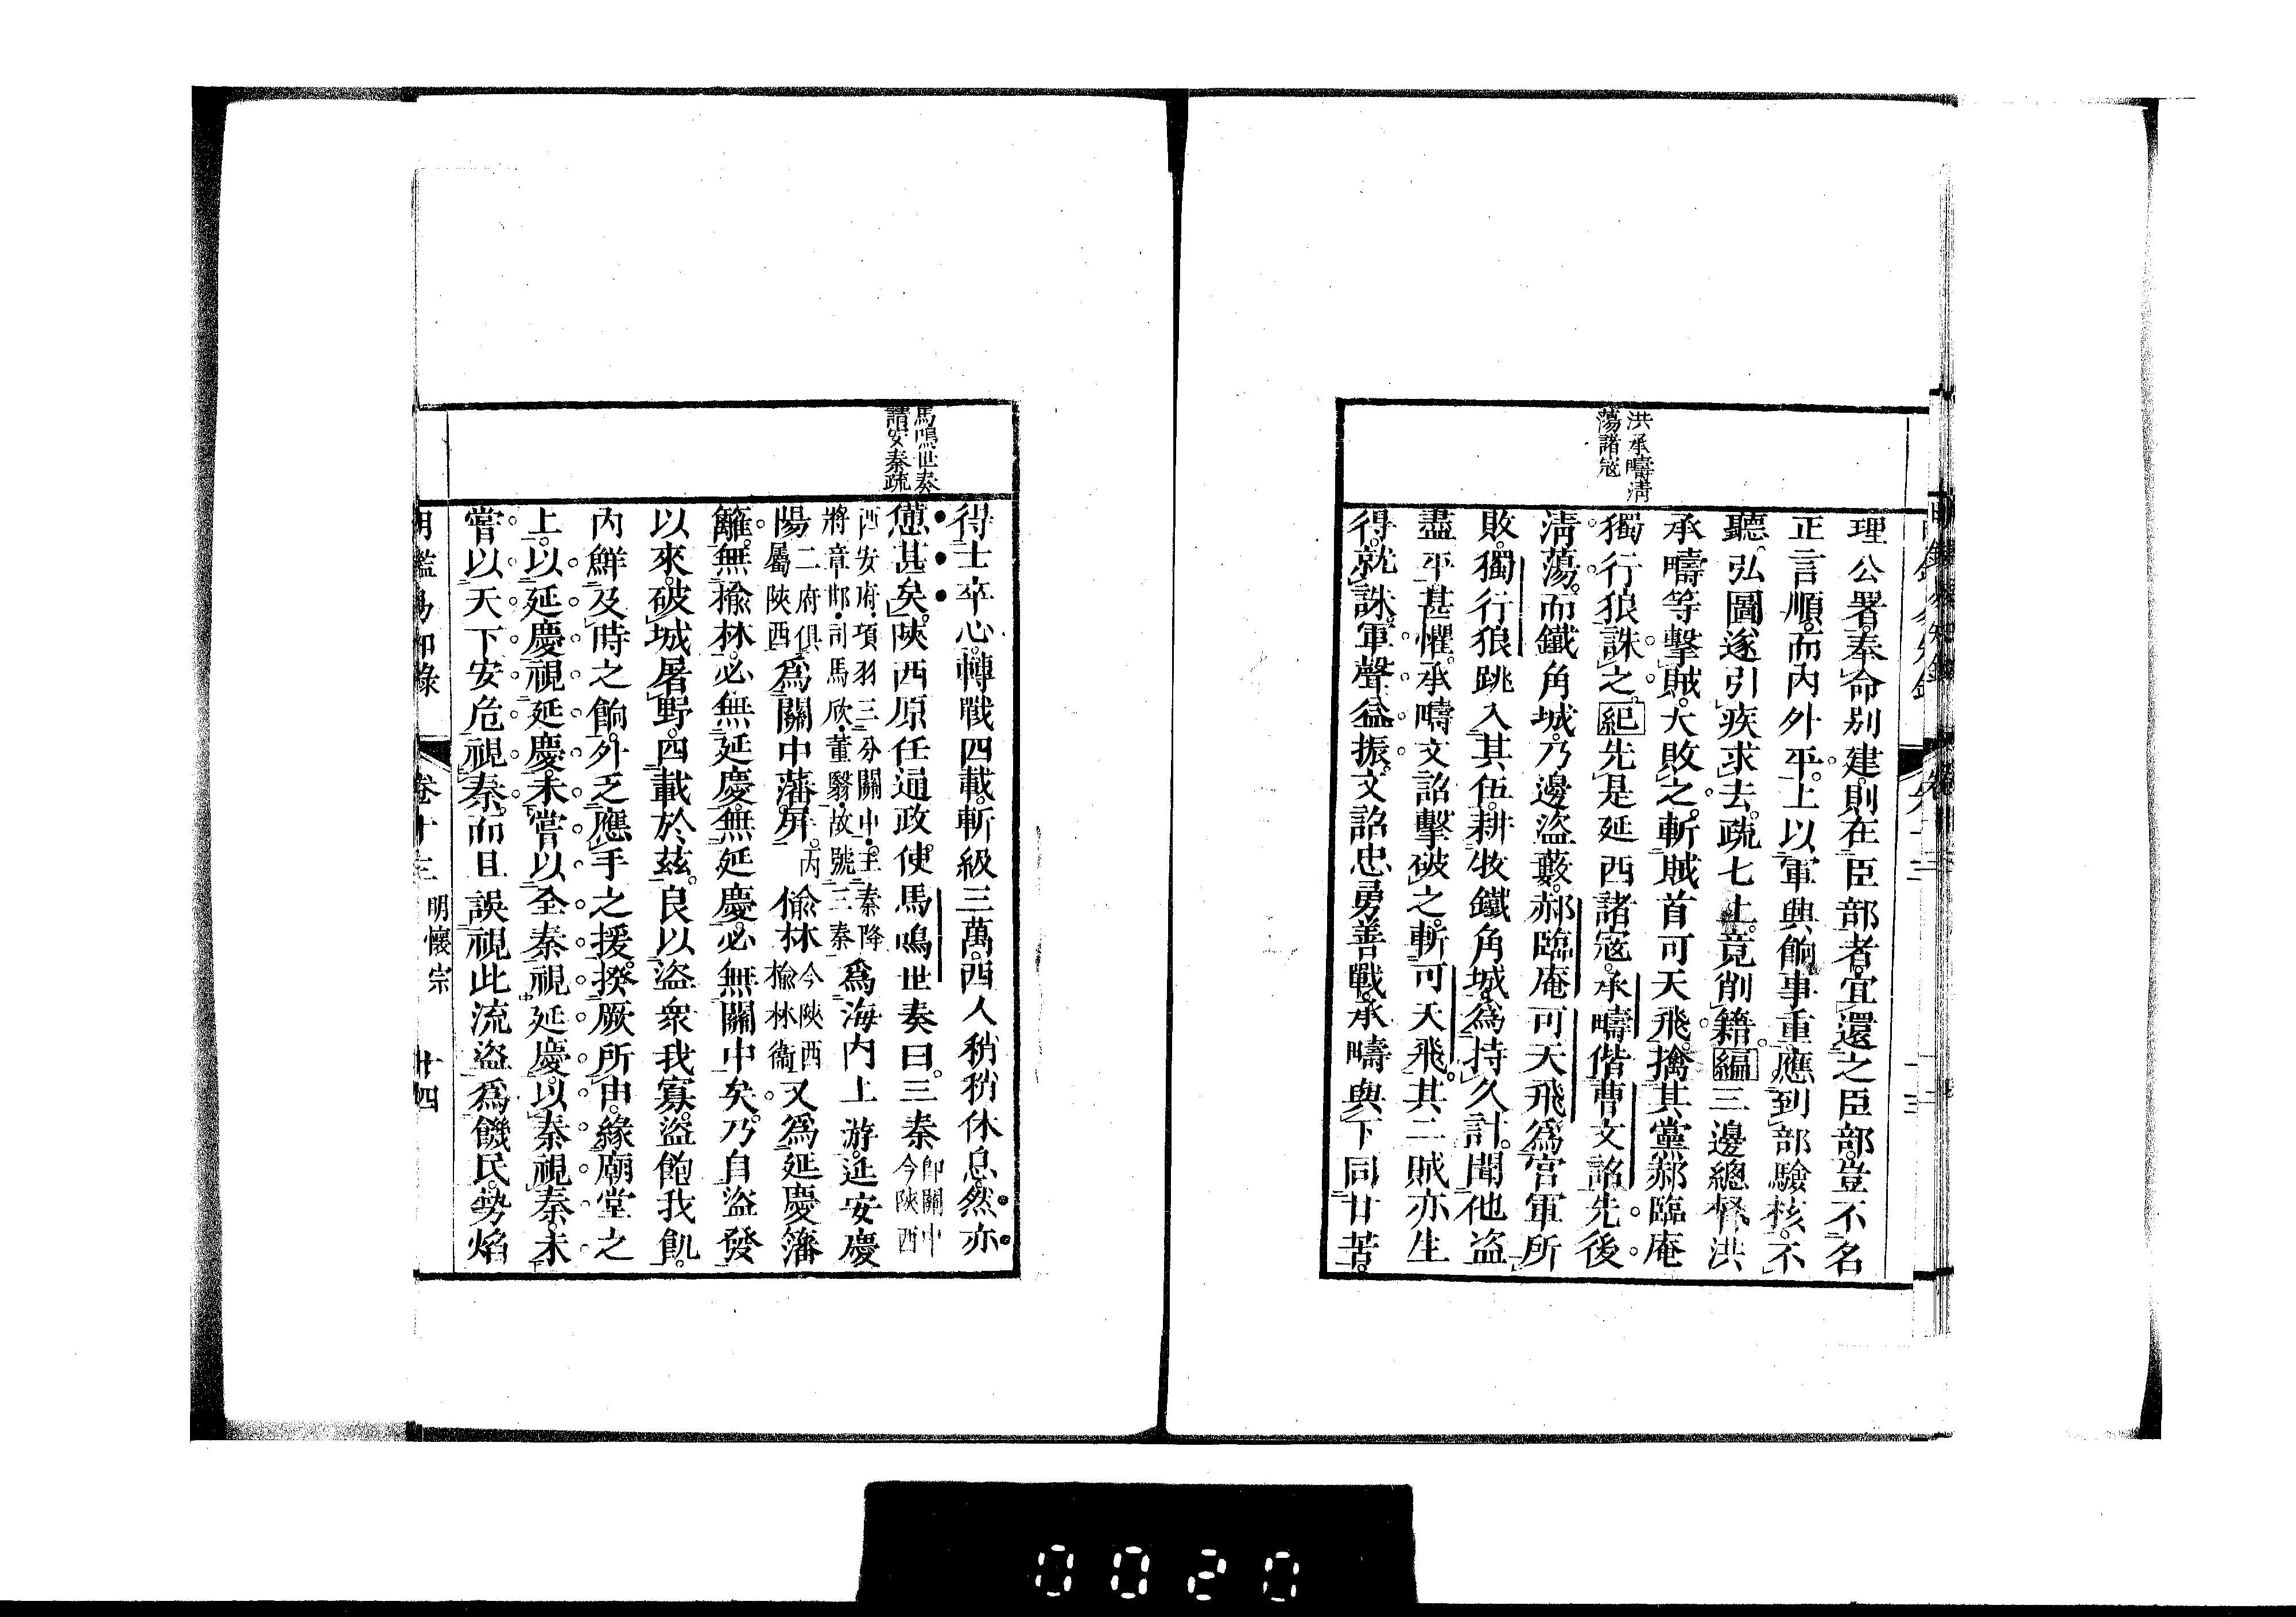 洪承疇清
蕩諸寇
理公署奉命別建則在臣部者宜還之臣部豈不名
正言順而內外平上以軍興餉事重應到部驗核不
聽弘圖遂引疾求去疏七上竟削籍編三邊總督洪
承疇等擊賊大敗之斬賊首可天飛擒其黨郝臨庵
獨行狼誅之紀先是延西諸寇承疇偕曹文詔先後
清蕩而鐵角城乃邊盜藪郝臨庵可天飛為官軍所
敗獨行狼跳入其伍耕牧鐵角城為持久計聞他盜
盡平甚懼承疇文詔擊破之斬可天飛其二賊亦生
得就誅軍聲益振文詔忠勇善戰承疇與下同甘苦
馬鳴世奏
請安秦疏
得士卒心轉戰四載斬級三萬西人稍稍休息然亦
憊甚矣陝西原任通政使馬鳴世奏曰三秦即關中
今陝西
西安府項羽三分關中王秦降
將章邯司馬欣董翳故號三秦為海內上游延安慶
陽二府俱
屬陝西為關中藩屏而榆林今陝西
榆林衞又為延慶藩
籬無榆林必無延慶無延慶必無關中矣乃自盜發
以來破城屠野四載於茲良以盜衆我寡盜飽我飢
內鮮及時之餉外乏應手之援揆厥所由緣廟堂之
上以延慶視延慶未嘗以全秦視延慶以秦視秦未
嘗以天下安危視秦而且誤視此流盜為饑民勢焰
明鑑易知錄 卷十三 明懷宗 廿四